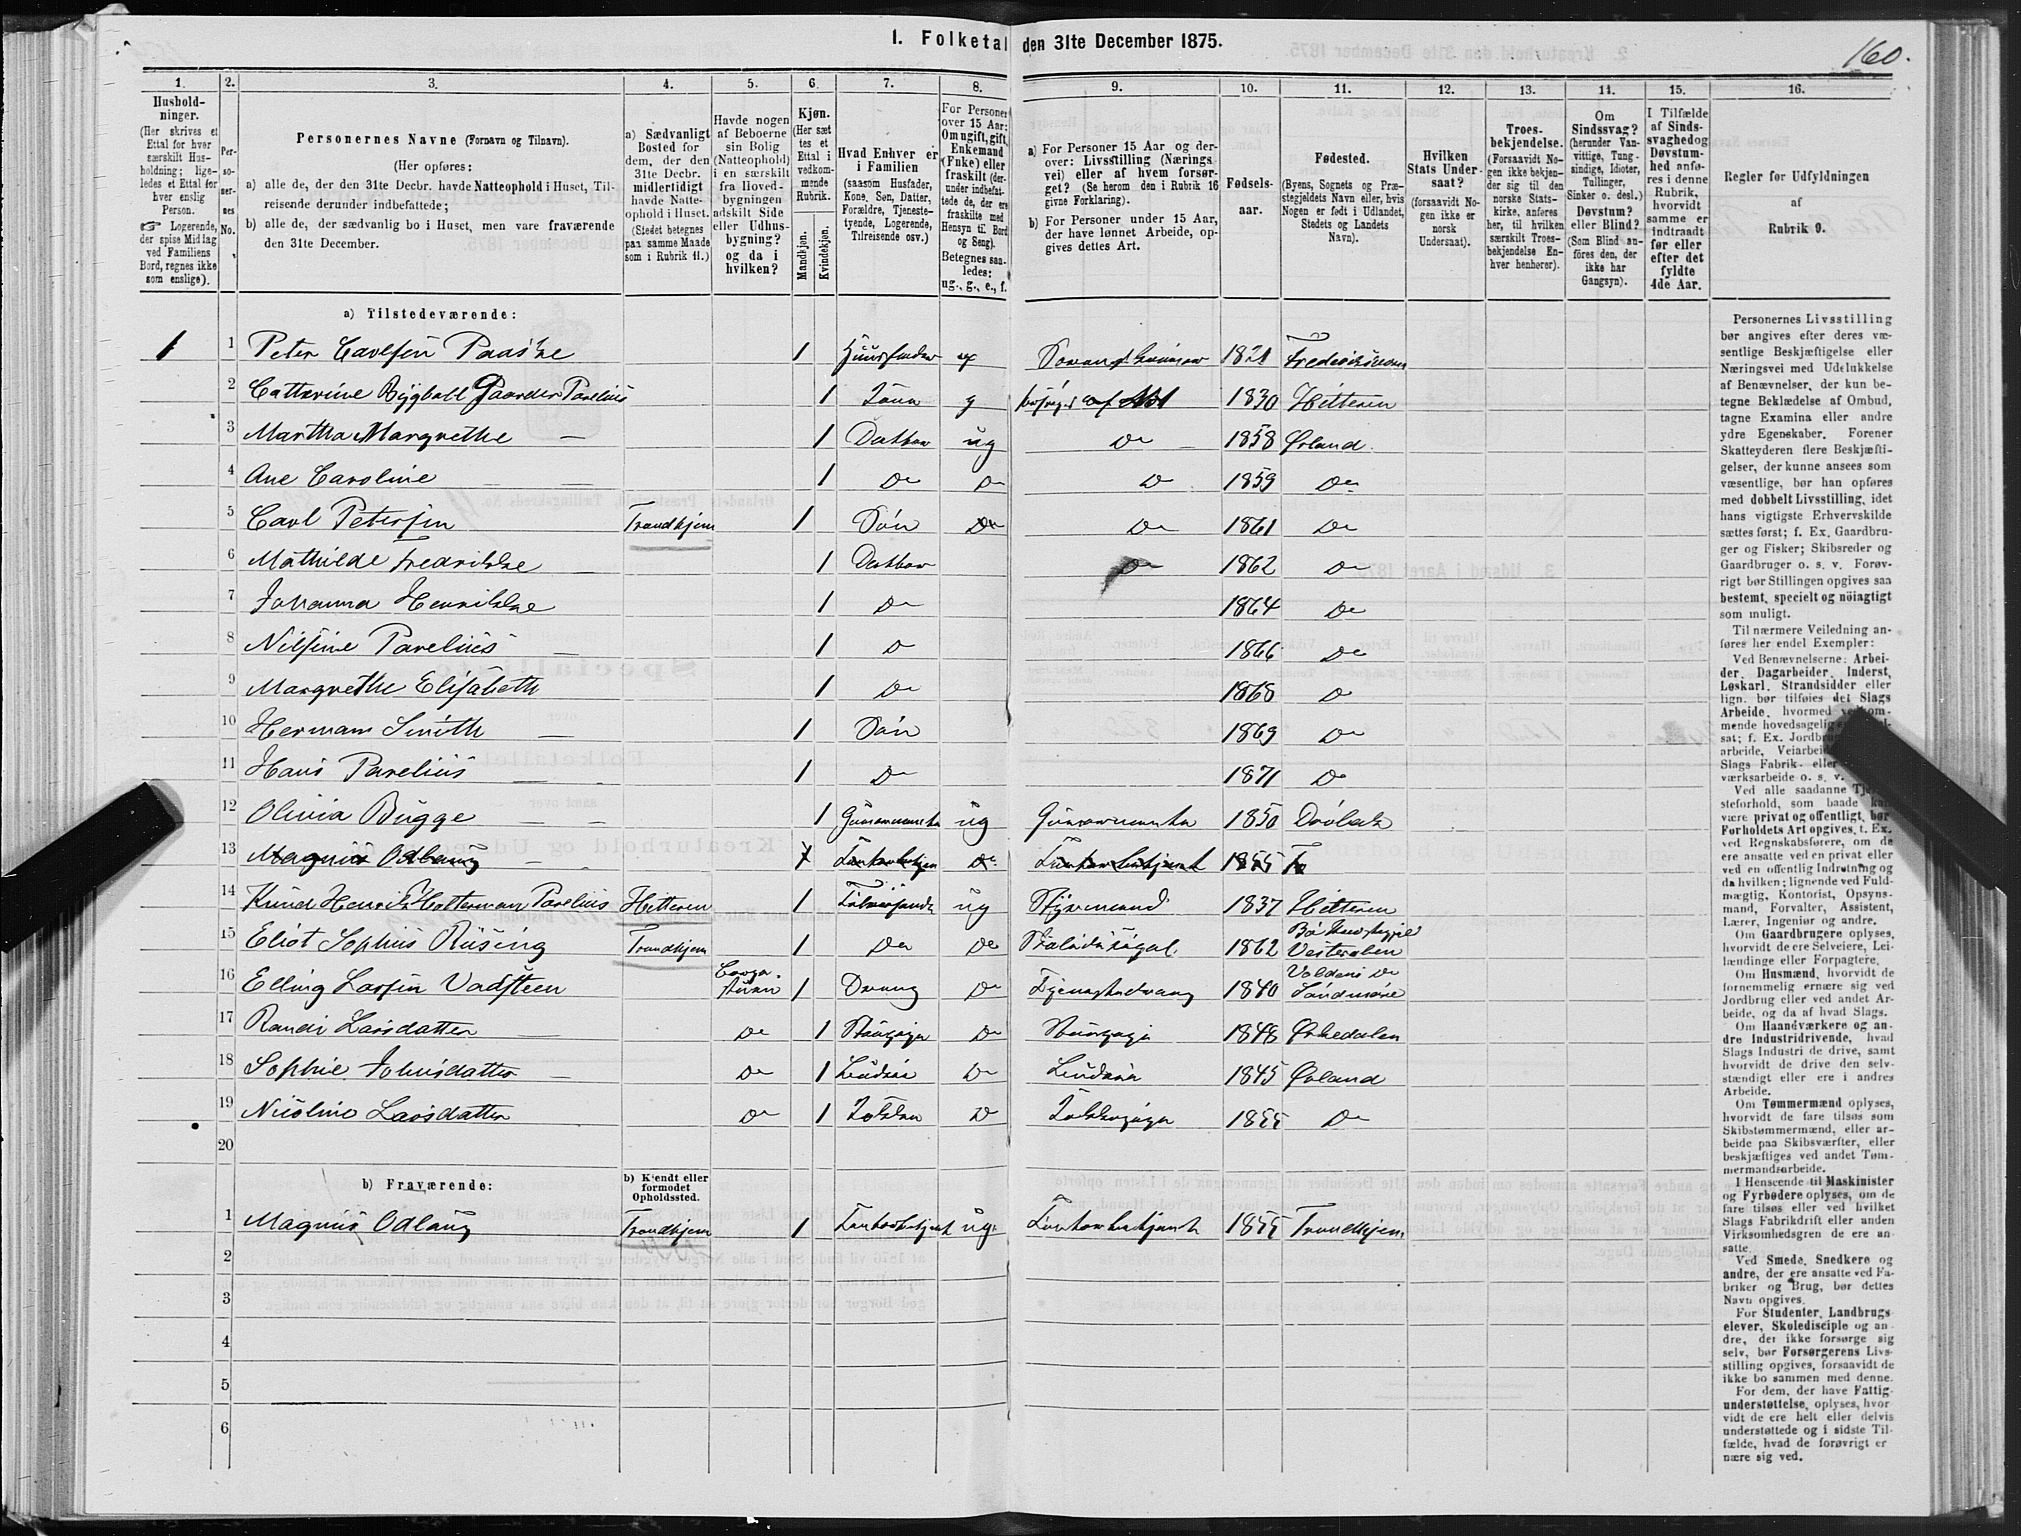 1. Folketal den 31te December 1875.
160.
1. 2. 3. 4. 5. 6. 7. 8. 9. 10. 11. 12. 13. 14. 15. 16.
Hushold-
ninger.
(Her skrives et
Ettal for hver
særskilt Hus-
holdning; lige-
ledes et Ettal for
hver enslig
Person.
☞ Logerende,
der spise Middag
ved Familiens
Bord, regnes ikke
som enslige).
Per-
so-
ner-
nes
No.
Personernes Navne (Fornavn og Tilnavn).
(Her opføres:
a) alle de, der den 31te Decbr. havde Natteophold i Huset, Til-
reisende derunder indbefattede;
b) alle de, der sædvanlig bo i Huset, men vare fraværende
den 31te December.
a) Sædvanligt
Bosted for
dem, der den
31te Decbr.
midlertidigt
havde Natte-
ophold i Huset.
(Stedet betegnes
paa samme Maade
som i Rubrik 11.)
Havde nogen
af Beboerne
sin Bolig
(Natteophold)
i en særskilt
fra Hoved-
bygningen
adskilt Side
eller Udhus-
bygning?
og da i
hvilken?
Kjøn.
(Her sæt
tes et
Ettal i
vedkom-
mende
Rubrik.
Mandkjøn.
Kvindekjøn.
Hvad Enhver er
i Familien
(saasom Husfader,
Kone, Søn, Datter,
Forældre, Tjeneste-
tyende, Logerende,
Tilreisende osv.)
For Personer
over 15 Aar:
Om ugift, gift,
Enkemand
(Enke) eller
fraskilt (der-
under indbefat-
tede de, der ere
fraskilte med
Hensyn til Bord
og Seng).
Betegnes saa-
ledes:
ug., g., e., f.
a) For Personer 15 Aar og der-
over: Livsstilling (Nærings
vei) eller af hvem forsør-
get? (Se herom den i Rubrik 16
givne Forklaring).
b) For Personer under 15 Aar,
der have lønnet Arbeide, op-
gives dettes Art.
Fødsels-
aar.
Fødested.
(Byens, Sognets og Præ-
stegjeldets Navn eller, hvis
Nogen er født i Udlandet,
Stedets og Landets
Navn).
Hvilken
Stats Under-
saat?
(forsaavidt No-
gen ikke er
norsk
Undersaat).
Troes-
bekjendelse.
(Forsaavidt No-
gen ikke bekjen-
der sig til den
norske Stats-
kirke, anføres
her, til hvilken
særskilt Troes-
bekjendelse En-
hver henhører).
Om
Sindssvag?
(herunder Van-
vittige, Tung-
sindige, Idioter,
Tullinger,
Sinker o. desl.)
Døvstum?
eller Blind?
(Som Blind an-
føres den, der
ikke har
Gangsyn).
I Tilfælde
af Sinds-
svaghed og
Døvstum-
hed anfø-
res i denne
Rubrik,
hvorvidt
samme er
indtraadt
før eller
efter det
fyldte
4de Aar.
Regler for Udfyldningen
af
Rubrik 9.
a) Tilstedeværende:
1 1 Peter Carlsen Paaske 1 Huusfader g 1821 Frederikssteen
2 Catharine Rygball Paareliüs 1 Kone g forsørges af No 1 1830 Hitteren
3 Martha Margrethe — 1 Datter ug Do 1858 Ørland.
4 Ane Caroline — 1 Do Do Do 1859 Do
5 Carl Petersen — Trondhjem 1 Søn Do Do 1861 Do
6 Mathilde Fredrikke — 1 Datter Do 1862 Do
7 Johanna Henrikke — 1 Do 1864 Do
8 Nilsine Pareliüs — 1 Do 1866 Do
9 Margrethe Elisabeth — 1 Do 1868 Do
10 Herman Smith — 1 Søn 1869 Do
11 Hans Pareliüs — 1 Do 1871 Do
12 Olivia Bügge — 1 Güvernannte ug Güvernannte 1850
13 Magnüs Odlaüg — 1 Kontorbetjent Do Kontorbetjent 1855 Tr
14 Knüd Henrik Holterman Pareliüs Hitteren 1 Tilreisende ug Styrmand 1837 Hitteren
15 Eliot Sophüs Rüsing Trondhjem 1 Do Do 1862 Vesteraalen
16 Elling Larsen Vadsteen Borge-stüen 1 Dreng Do Tjenestedreng 1840 Søndmøre
17 Randi Larsdatter — Do 1 Stüepige Do Stüepige 1848 Ørkedalen
18 Sophie Johnsdatter — Do 1 Büdeie Do Büdeie 1845 Ørland
19 Nicoline Larsdatter Do 1 Kokke Do Kokkepige 1855 Do
20
b) Fraværende:
b) Kjendt eller
formodet
Opholdssted.
1 Magnüs Odlaüg Trondhjem 1 Kontorbetjent ug. Kontorbetjent 1855 Trondhjem
2
3
4
5
6
Personernes Livsstilling
bør angives efter deres væ-
sentlige Beskjæftigelse eller
Næringsvei med Udelukkelse
af Benævnelser, der kun be-
tegne Beklædelse af Ombud,
tagne Examina eller andre
ydre Egenskaber. Forener
Skatteyderen flere Beskjæfti-
gelser, der kunne ansees som
væsentlige, bør han opføres
med dobbelt Livsstilling, idet
hans vigtigste Erhvervskilde
sættes først; f. Ex. Gaardbru-
ger og Fisker; Skibsreder og
Gaardbruger o. s. v. Forøv-
rigt bør Stillingen opgives saa
bestemt, specielt og nøiagtigt
som muligt.
Til nærmere Veiledning an-
føres her endel Exempler:
Ved Benævnelserne: Arbei-
der, Dagarbeider, Inderst,
Løskarl, Strandsidder eller
lign. bør tilføies det Slags
Arbeide, hvormed vedkom-
mende hovedsagelig
sat; f. Ex. Jordbru
arbeide, Veiarbei
Slags Fabrik- eller
værksarbeide o. s. v.
Ved alle saadanne Tje
steforhold, som baade kan
være privat og offentligt, bør
Forholdets Art opgives, t. Ex.
ved Regnskabsførere, om de
ere ansatte ved en privat eller
ved en offentlig Indretning og
da hvilken; lignende ved Fuld-
mægtig, Kontorist, Opsyns-
mand, Forvalter, Assistent,
Lærer, Ingeniør og andre.
Om Gaardbrugere oplyses,
hvorvidt de ere Selveiere, Lei-
lændinge eller Forpagtere.
Om Husmænd, hvorvidt de
fornemmelig ernære sig ved
Jordbrug eller ved andet Ar-
beide, og da af hvad Slags.
Om Haandværkere og an-
dre Industridrivende, hvad
Slags Industri de drive, samt
hvorvidt de drive den selv-
stændigt eller ere i andres
Arbeide.
Om Tømmermænd oplyses,
hvorvidt de fare tilsøs som
Skibstømmermænd, eller ar-
beide paa Skibsværfter, eller
beskjæftiges ved andet Tøm-
mermandsarbeide.
I Henseende til Maskinister
og Fyrbødere oplyses, om de
fare tilsøs eller ved hvilket
Slags Fabrikdrift eller anden
Virksomhedsgren de ere an-
satte.
Ved Smede, Snedkere og
andre, der ere ansatte ved Fa-
briker og Brug, bør dettes
Navn opgives.
For Studenter, Landbrugs
elever, Skoledisciple og an-
dre, der ikke forsørge sig
selv, bør Forsørgerens Livs-
stilling opgives, forsaavidt de
ikke bo sammen med denne.
For dem, der have Fattig-
understøttelse, oplyses, hvor-
vidt de ere helt eller delvis
understøttede og i sidste Til-
fælde, hvad de forøvrigt er
nære sig ved.